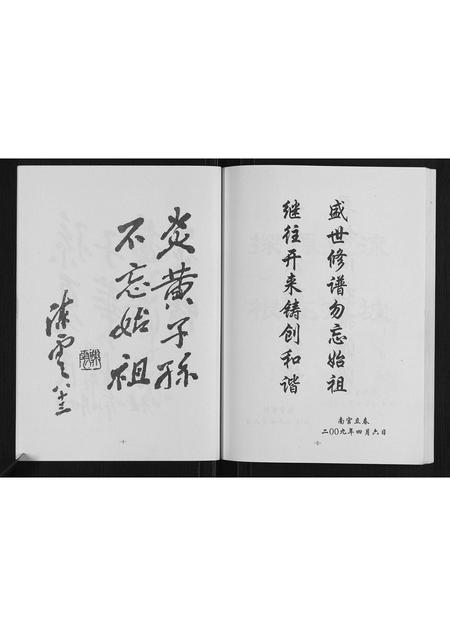 炎黄子孙
不忘始祖
陈云
盛世修谱勿忘始祖
继往开来铸创和谐
南宫立春
二00九年四月六日